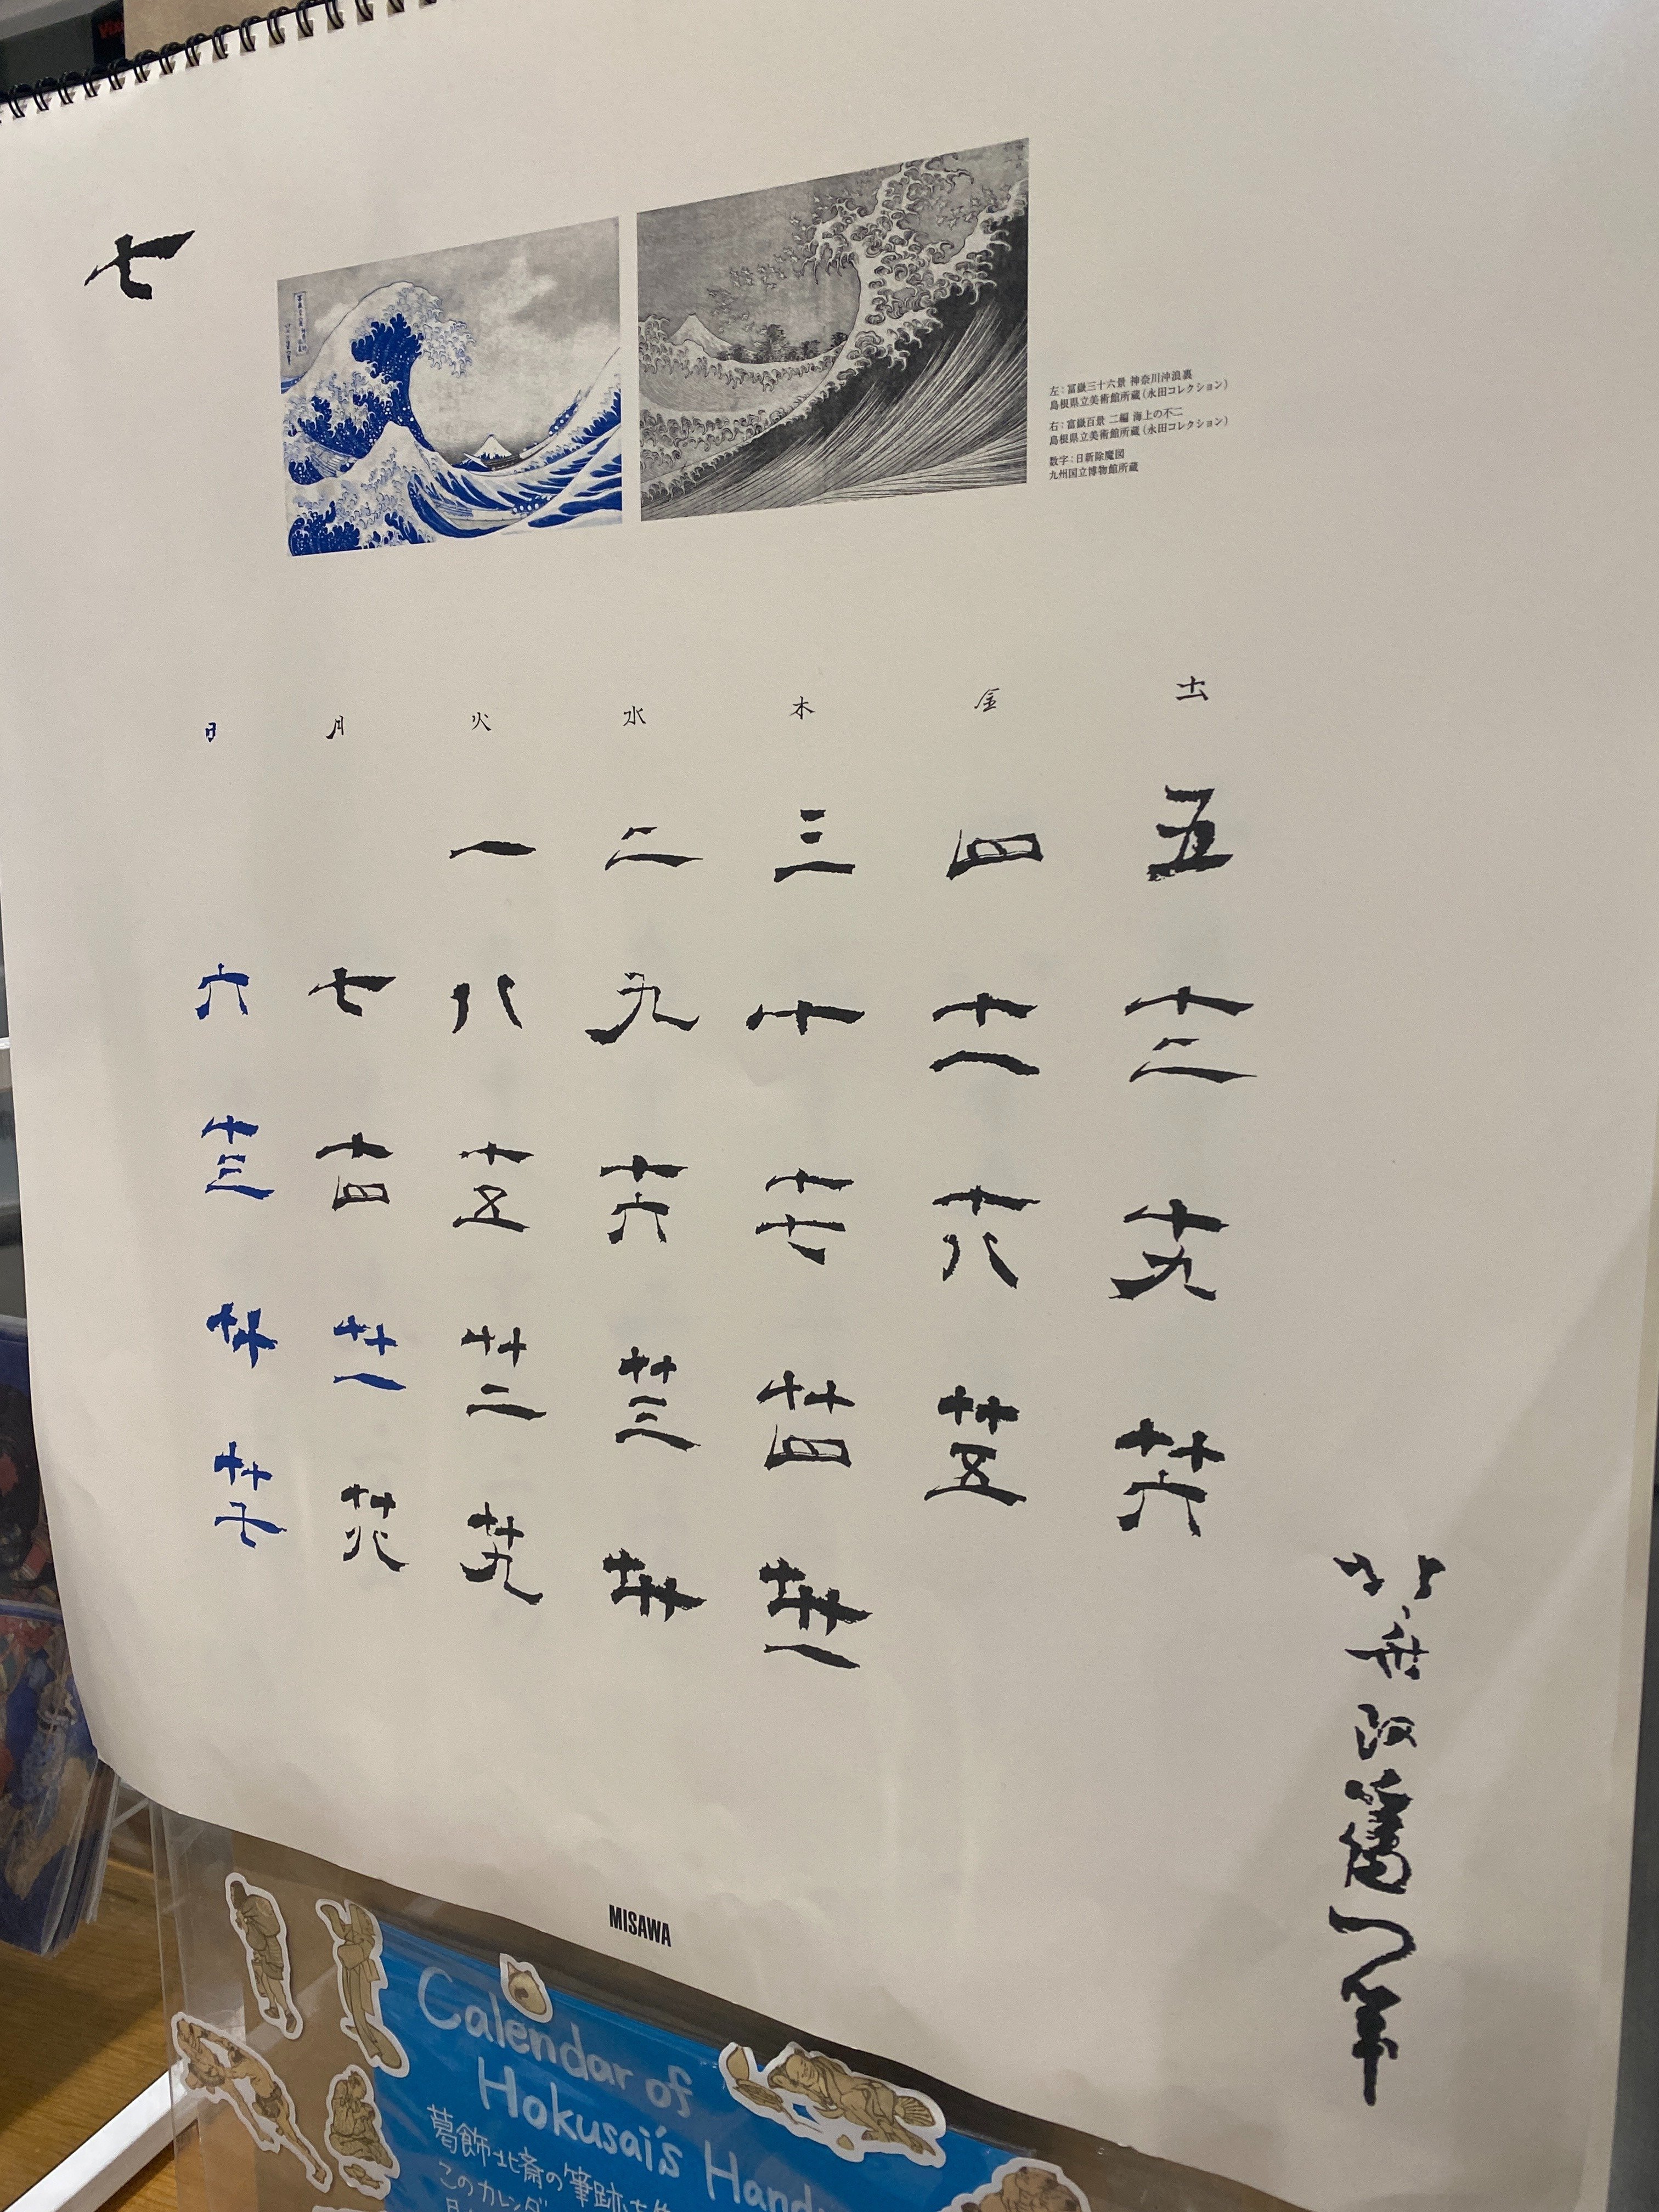 七
左：冨嶽三十六景 神奈川沖浪裏
島根県立美術館所蔵（永田コレクション）
右：富嶽百景 二編 海上の不二
島根県立美術館所蔵（永田コレクション）
数字：日新除魔図
九州国立博物館所蔵
日 月 火 水 木 金 土
一 二 三 四 五
六 七 八 九 十 十一 十二
十三 十四 十五 十六 十七 十八 十九
廿 廿一 廿二 廿三 廿四 廿五 廿六
廿七 廿八 廿九 卅 卅一
北斎
MISAWA
Calendar of
Hokusai's
葛飾北斎の筆跡を
このカレンダ